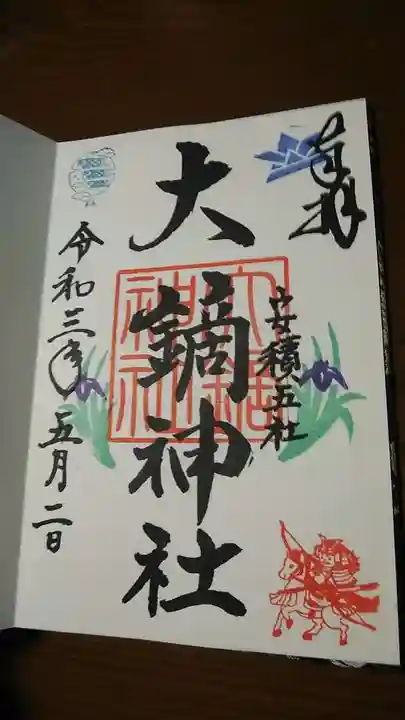 奉拝
安積五社
大鏑神社
大鏑神社
令和三年五月二日